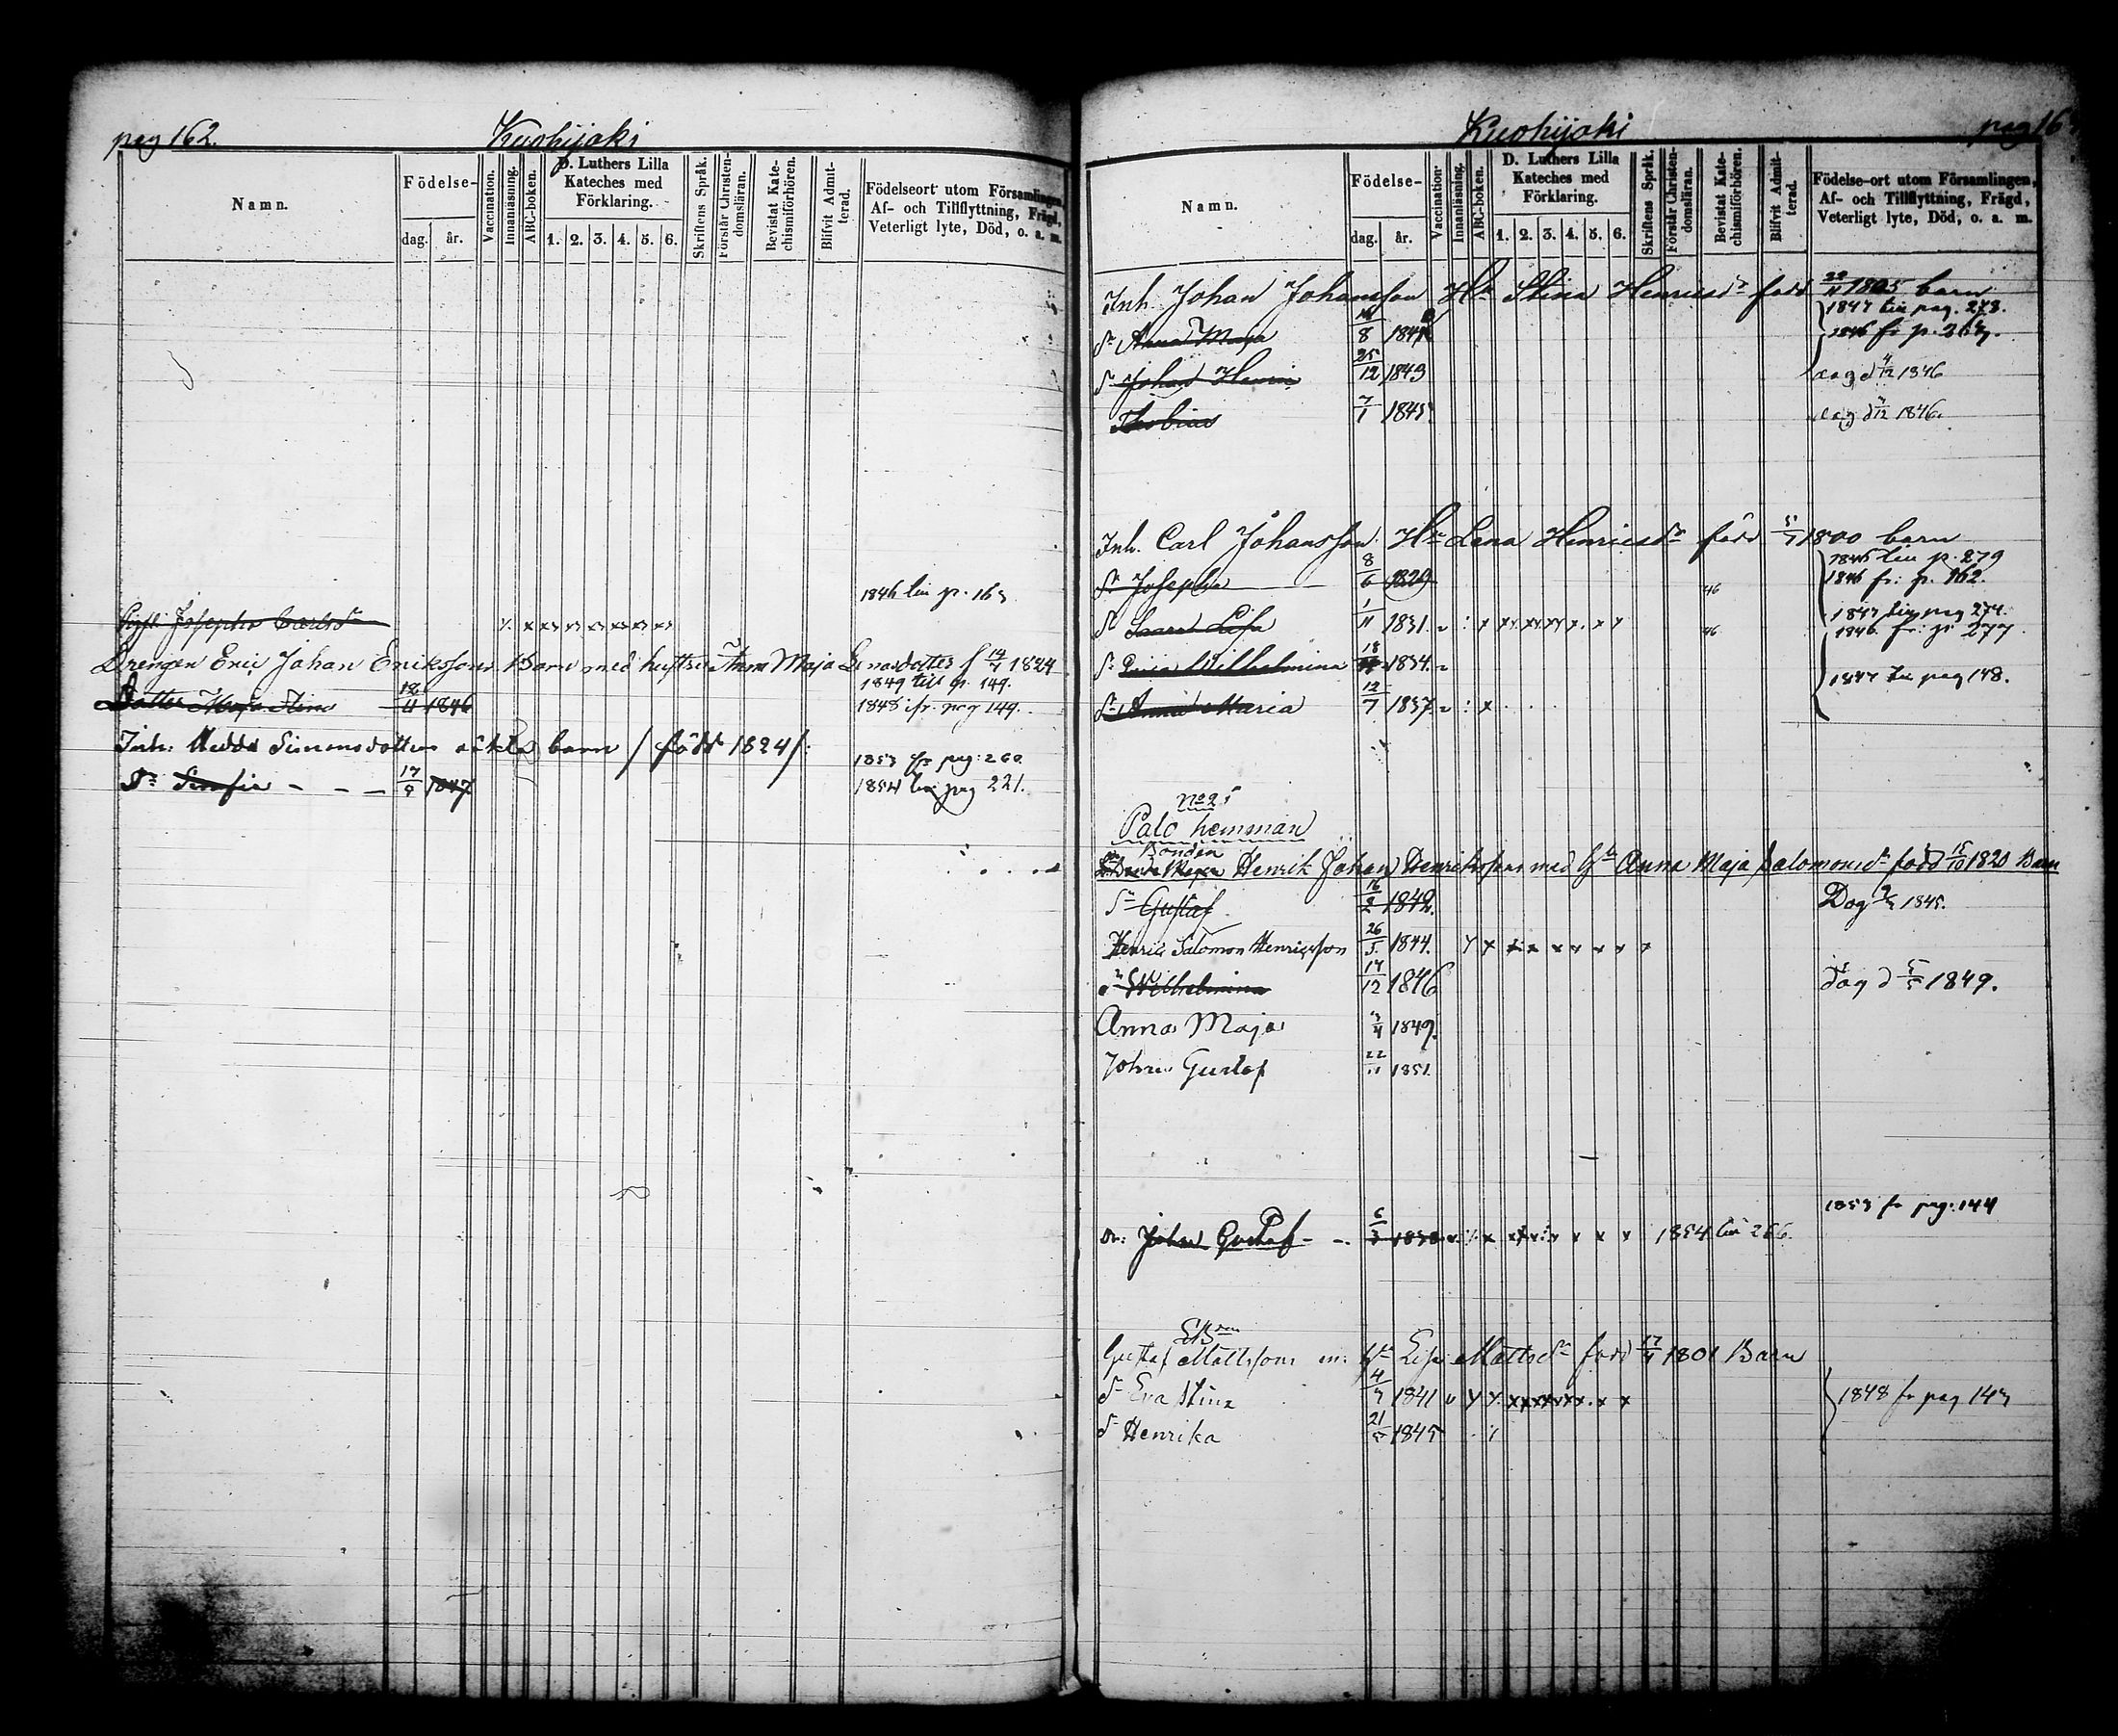 pag 162.
Kuohijoki
Namn.
Födelse-
dag.
år.
Vaccination.
Innanläsning.
ABC-boken.
D. Luthers Lilla Kateches med Förklaring.
1. 2. 3. 4. 5. 6.
Skriftens Språk.
Förstår Christendomsläran.
Bevistat Katechismiförhören.
Blifvit Admitterad.
Födelseort utom Församlingen, Af- och Tillflyttning, Frägd, Veterligt lyte, Död, o. a. m.
1846 till p. 163
Josepha Carlsdr
Drengen Eric Johan Erikssons Barn med hustru Anna Maja Lenasdotter f 14/1 1824
1849 till p. 149.
Dotter Maja Stina 12/11 1846
1848 ifr. pag 149.
Inh: Hedda Simonsdotters oäkta barn /född 1824/:
1853 fr pag: 260
Dr: Sofia - - - 17/9 1847
1854 till pag 221.
Kuohijoki
pag 16
Namn.
Födelse-
dag.
år.
Vaccination.
Innanläsning.
ABC-boken.
D. Luthers Lilla Kateches med Förklaring.
1. 2. 3. 4. 5. 6.
Skriftens Språk.
Förstår Christendomsläran.
Bevistat Katechismiförhören.
Blifvit Admitterad.
Födelse-ort utom Församlingen, Af- och Tillflyttning, Frägd, Veterligt lyte, Död, o. a. m.
Inh. Johan Johansson Hu Stina Henricsdr född 1805 barn
1847 till pag. 273.
Dr Anna Maja 8
1846 fr p. 267.
Sn Johan Henric 25/12 1843
dog d 4/12 1846
Thobias 7/1 1845
dog d 4/12 1846.
Inh. Carl Johansson. Hu Lena Henricsdr född 5/7 1800 barn
1846 till p. 279
Dr Josepha 8/6 1829 46
1846 fr: p. 162.
1847 till pag 274.
Dr Saara Lisa 1/11 1831. 46
1846 fr: p 277
Dr Wilhelmina 18 1834.
1847 till pag 148.
Dr Anna Maria 12/7 1837.
No 25
Palo hemman
Bonden
Henrik Johan Henrikssons med hu Anna Maja Salomonsdr född 15/10 1820 Barn
Sn Gustaf 16/2 1842.
Dog 1845.
Henric Salomon Henricsson 26/5 1844.
Wilhelmina 17/12 1846
dog d 5/5 1849.
Anna Maja 3/4 1849.
Johan Gustaf 22/11 1851
1853 fr pag: 144
Dr: Johan Gustaf - - 6/3 1838 1854 till 266.
Gustaf Mattssons m: hu Lisa Mattsdr född 17/4 1801 Barn
Dr Eva Stina 4/3 1841
1848 fr pag 143
Dr Henrika 21/5 1845